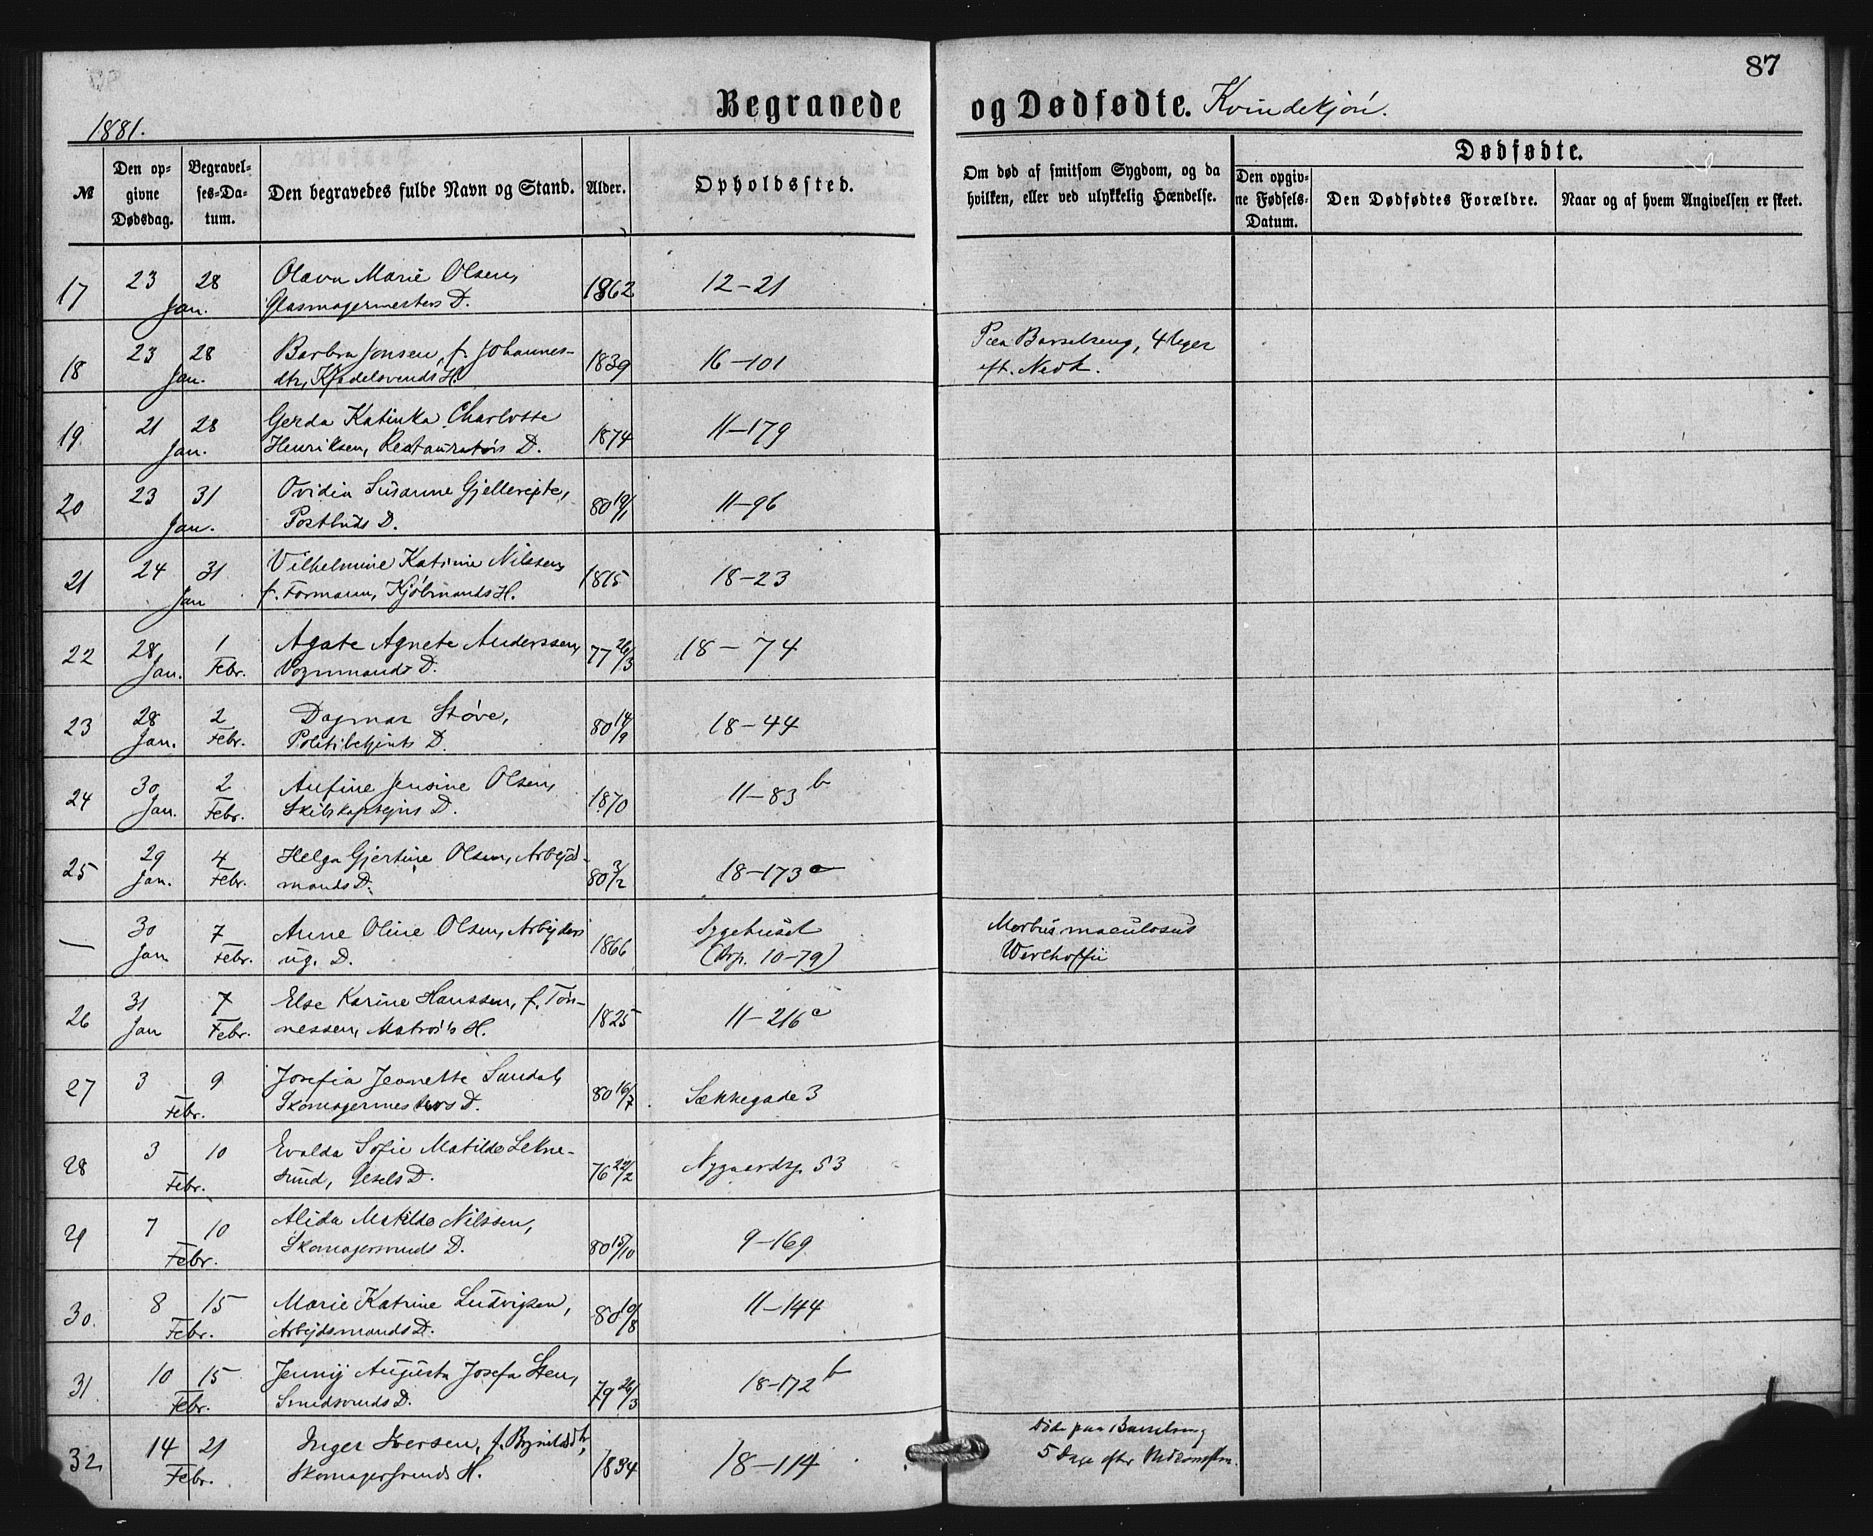 87
1881.
Begravede og Dødfødte. Kvindekjøn.
№
Den op-
givne
Dødsdag.
Begravel-
ses-Da-
tum.
Den begravedes fulde Navn og Stand.
Alder.
Opholdssted.
Om død af smitsom Sygdom, og da
hvilken, eller ved ulykkelig Hændelse.
Dødfødte.
Den opgiv-
ne Fødsels-
Datum.
Den Dødfødtes Forældre.
Naar og af hvem Angivelsen er skeet.
17 23 28 Olava Marie Olsen, 1862 12-21
Jan. Glasmagermesters D.
18 23 28 Barbra Jonsen, f. Johannes- 1839 16-101 Paa Barselseng, 4 Uger
Jan. dtr, H. eft. Nedk.
19 21 28 Gerda Katinka Charlotte 1874 11-179
Jan. Henriksen, Restauratørs D.
20 23 31 Ovidia Susanne 80 19/1 11-96
Jan. Postbuds D.
21 24 31 Vilhelmine Katrine Nilssen, 1815 18-23
Jan f. Formann, Kjøbmands H.
22 28 1 Agate Agnete Anderssen, 77 26/3 18-74
Jan. Febr. Vognmands D.
23 28 2 Dagmar Støve, 80 14/9 18-44
Jan. Febr. Politibetjents D.
24 30 2 Anfine Jensine Olsen, 1870 11-83 b
Jan. Febr. Skibskaptejns D.
25 29 4 Helga Gjertine Olsen, Arbejds- 80 3/2 18-173 a
Jan. Febr. mands D.
— 30 7 Anne Oline Olsen, Arbejders 1866 Sygehuset Morbus maculosus
Jan Febr. ug. D. 10-79) Werlhoffii
26 31 7 Else Karine Hanssen, f. Tøn- 1825 11-216 c
Jan Febr. nessen, Matros H.
27 3 9 Josefia Jeanette Sundal, 80 16/7 Sækkegade 3
Febr. Skomagermesters D.
28 3 10 Evalda Sofie Matilde Lekne- 76 22/2 Nygaardsg. 53
Febr. sund, D.
29 7 10 Alida Matilde Nilssen, 80 15/10 9-169
Febr. Skomagersvends D.
30. 8 15 Marie Katrine Ludvigsen, 80 10/8 11-144
Febr. Arbejdsmands D.
31. 10 15 Jenny Augusta Josefa Sten, 79 26/3 18-172 b
Febr. Smedsvends D.
32 14 21 Inger Iversen, f. 1834 18-114 Døde paa Barselseng
Febr. Skomagersvends H. 5 Dage efter